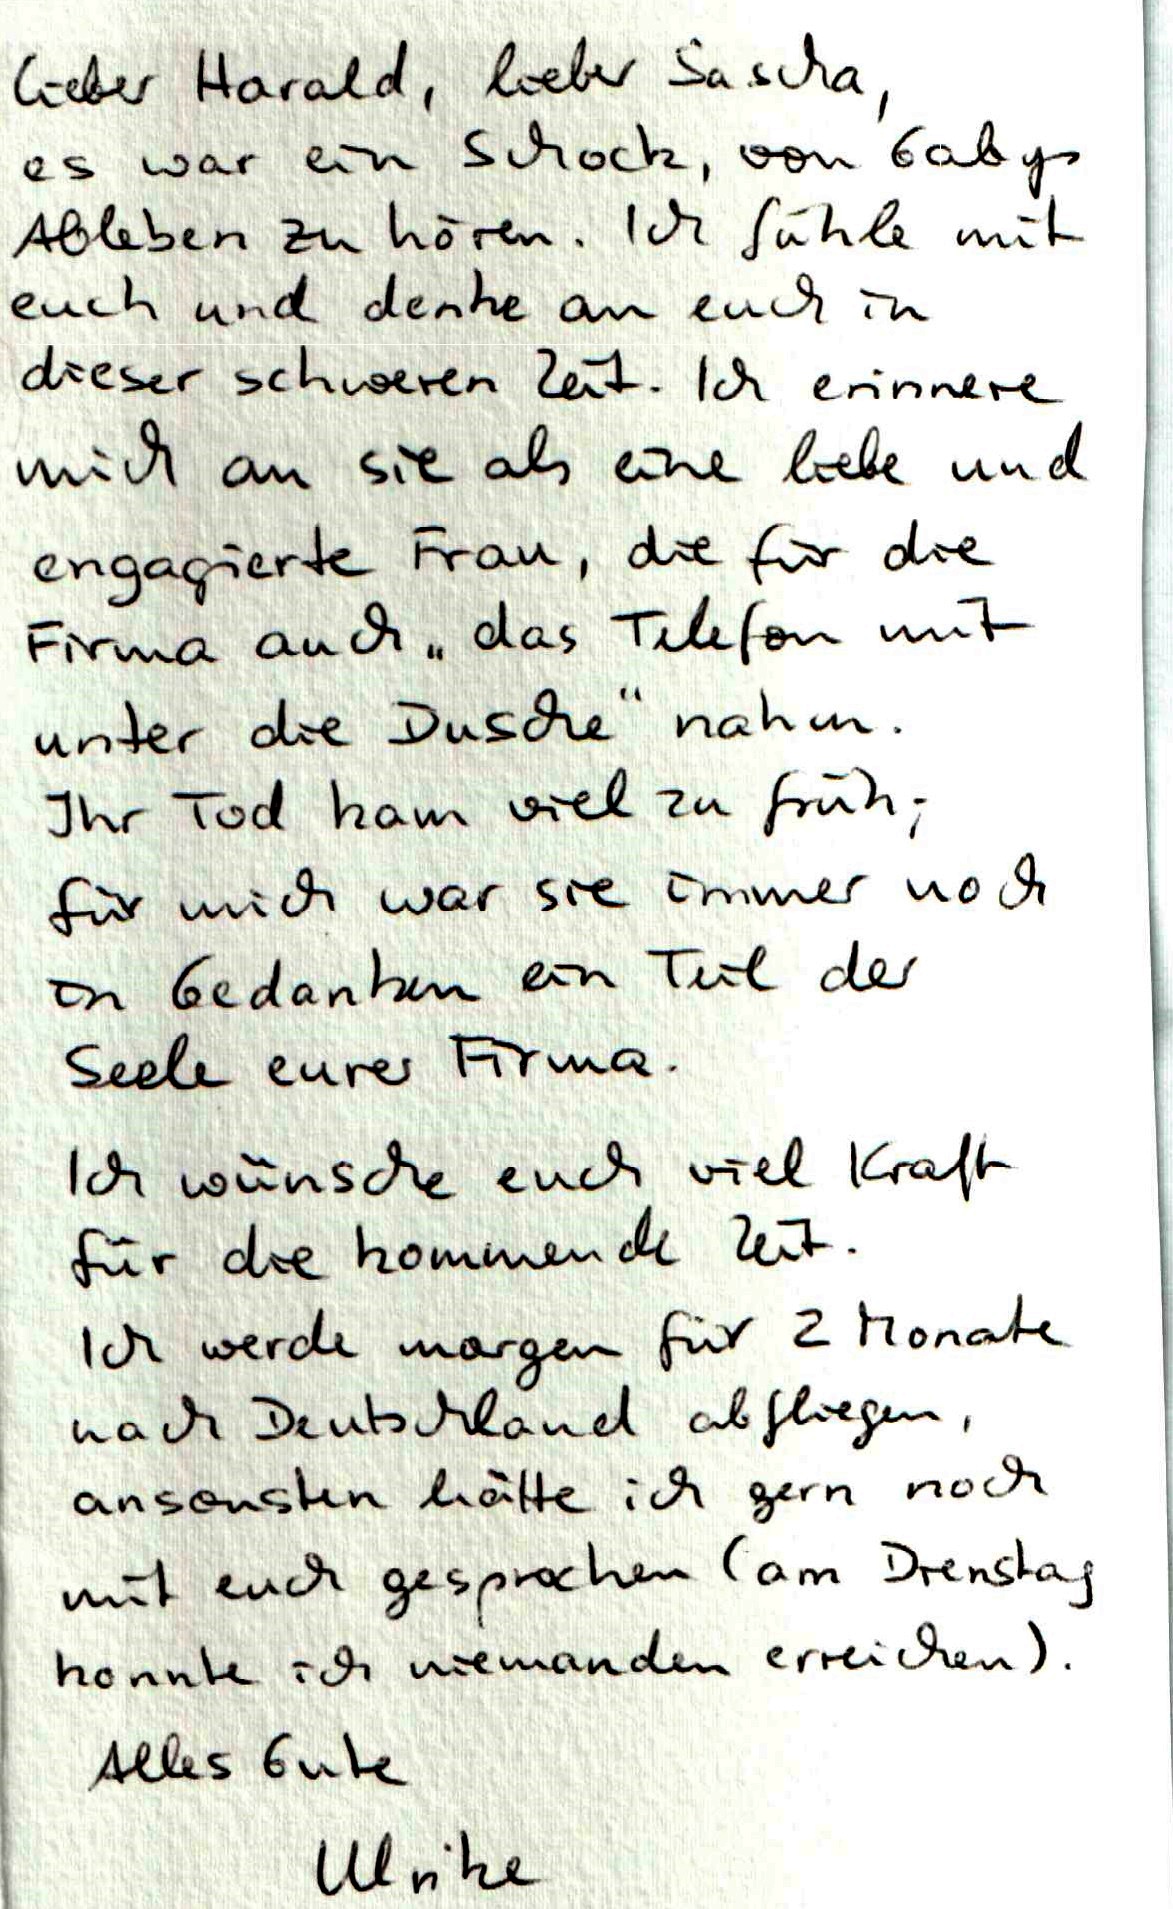 Lieber Harald, lieber Sascha,
es war ein Schock, von Gabys
Ableben zu hören. Ich fühle mit
euch und denke an euch in
dieser schweren Zeit. Ich erinnere
mich an sie als eine liebe und
engagierte Frau, die für die
Firma auch „das Telefon mit
unter die Dusche" nahm.
Ihr Tod kam viel zu früh;
für mich war sie immer noch
in Gedanken ein Teil der
Seele eurer Firma.
Ich wünsche euch viel Kraft
für die kommende Zeit.
Ich werde morgen für 2 Monate
nach Deutschland abfliegen,
ansonsten hätte ich gern noch
mit euch gesprochen (am Dienstag
konnte ich niemanden erreichen).
Alles Gute
Ulrike